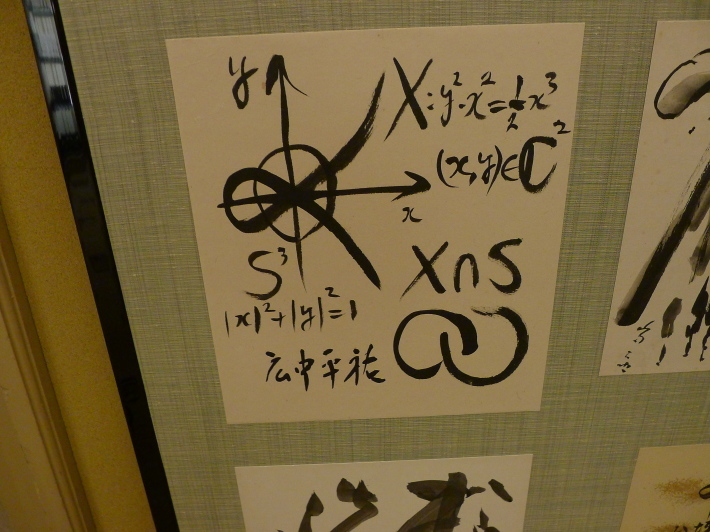 y
X: y²-x²=½x³
(x,y)∈ℂ²
x
S³
|x|²+|y|²=1
X∩S
広中平祐